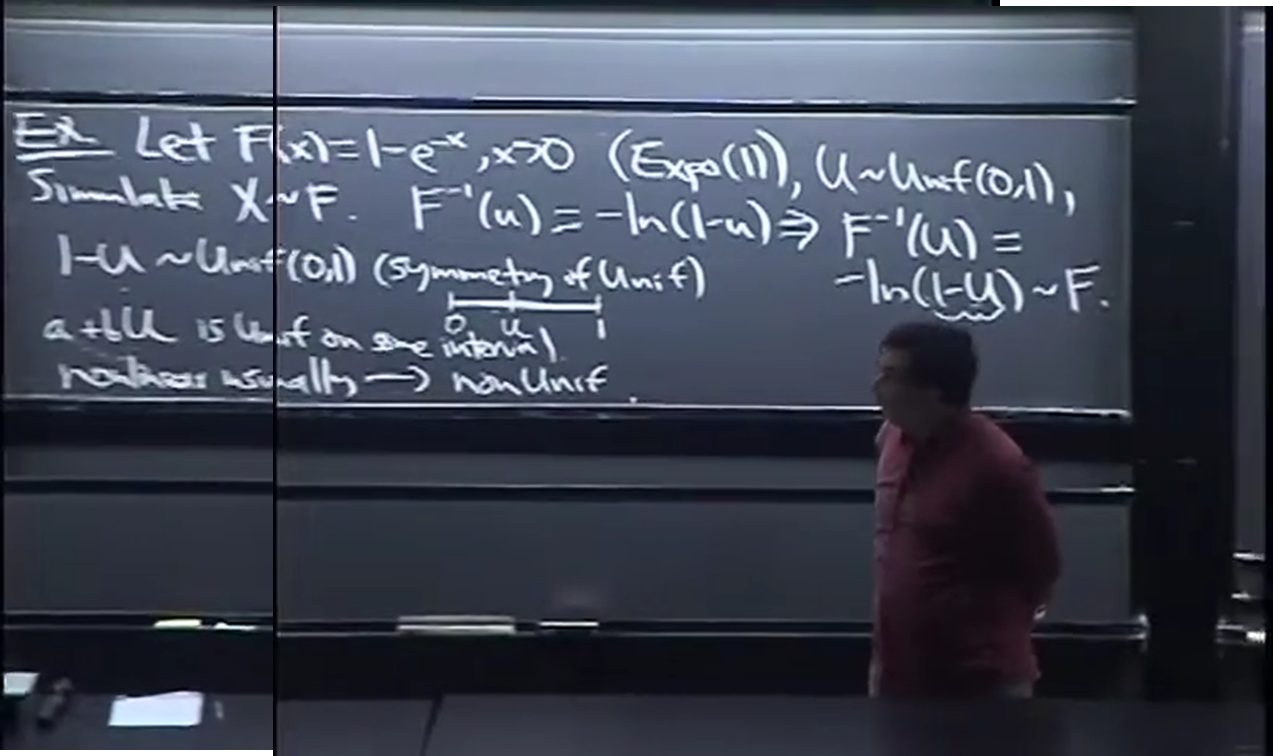 Ex Let F(x)=1-e^-x, x>0 (Expo(1)), U~Unif(0,1),
Simulate X~F. F^-1(u) = -ln(1-u) ⇒ F^-1(U) =
-ln(1-U) ~ F.
1-U ~ Unif(0,1) (symmetry of Unif)
0 u 1
a+bU is Unif on some interval.
nonlinear usually → non Unif